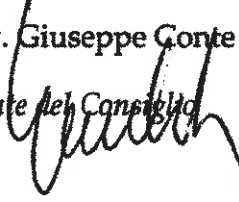 . Giuseppe Conte
te del Consiglio